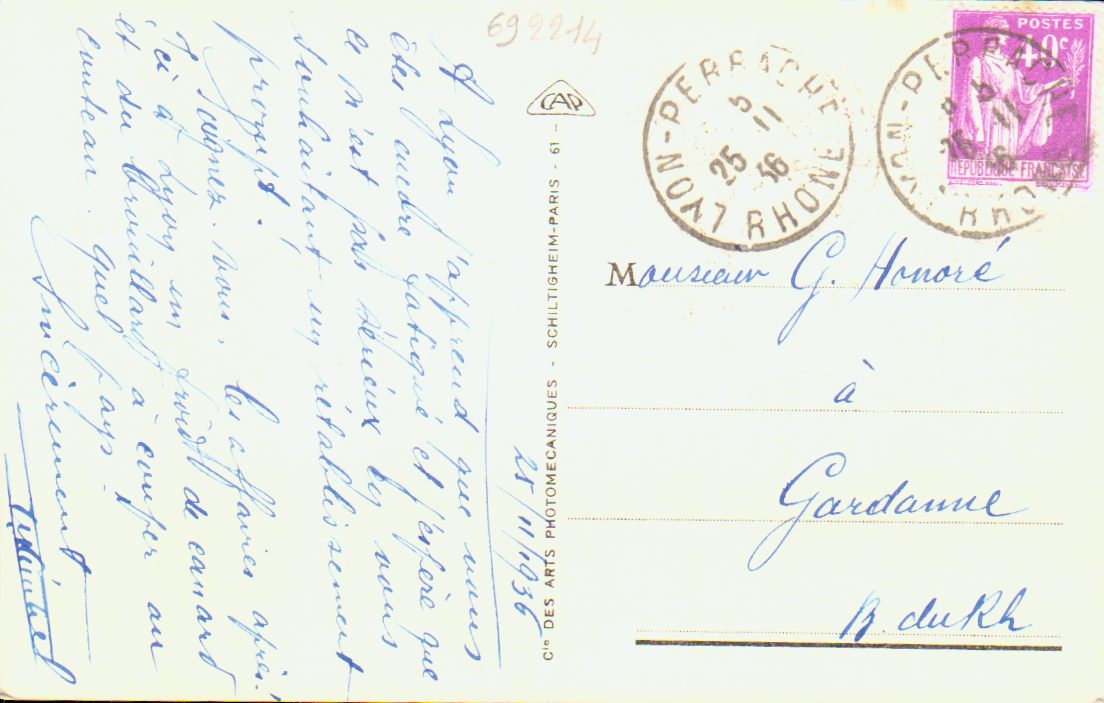 692214
25/11/1936
A Lyon j'apprend que vous
êtes andre fatigué et j'espère que
ce n'est pas sérieux en vous
souhaitant un rétablissement
prompt.
Soignez-vous. les affaires après!
Ici à Lyon un froid de canard
et du brouillard à couper au
couteau. quel pays!
Sincèrement
CAP
Cie DES ARTS PHOTOMECANIQUES - SCHILTIGHEIM-PARIS - 61 -
LYON-PERRACHE
5
11
25
36
RHONE
POSTES
40c
REPUBLIQUE FRANÇAISE
LYON-PERRACHE
RHONE
Monsieur G. Honoré
à
Gardanne
B. du Rh